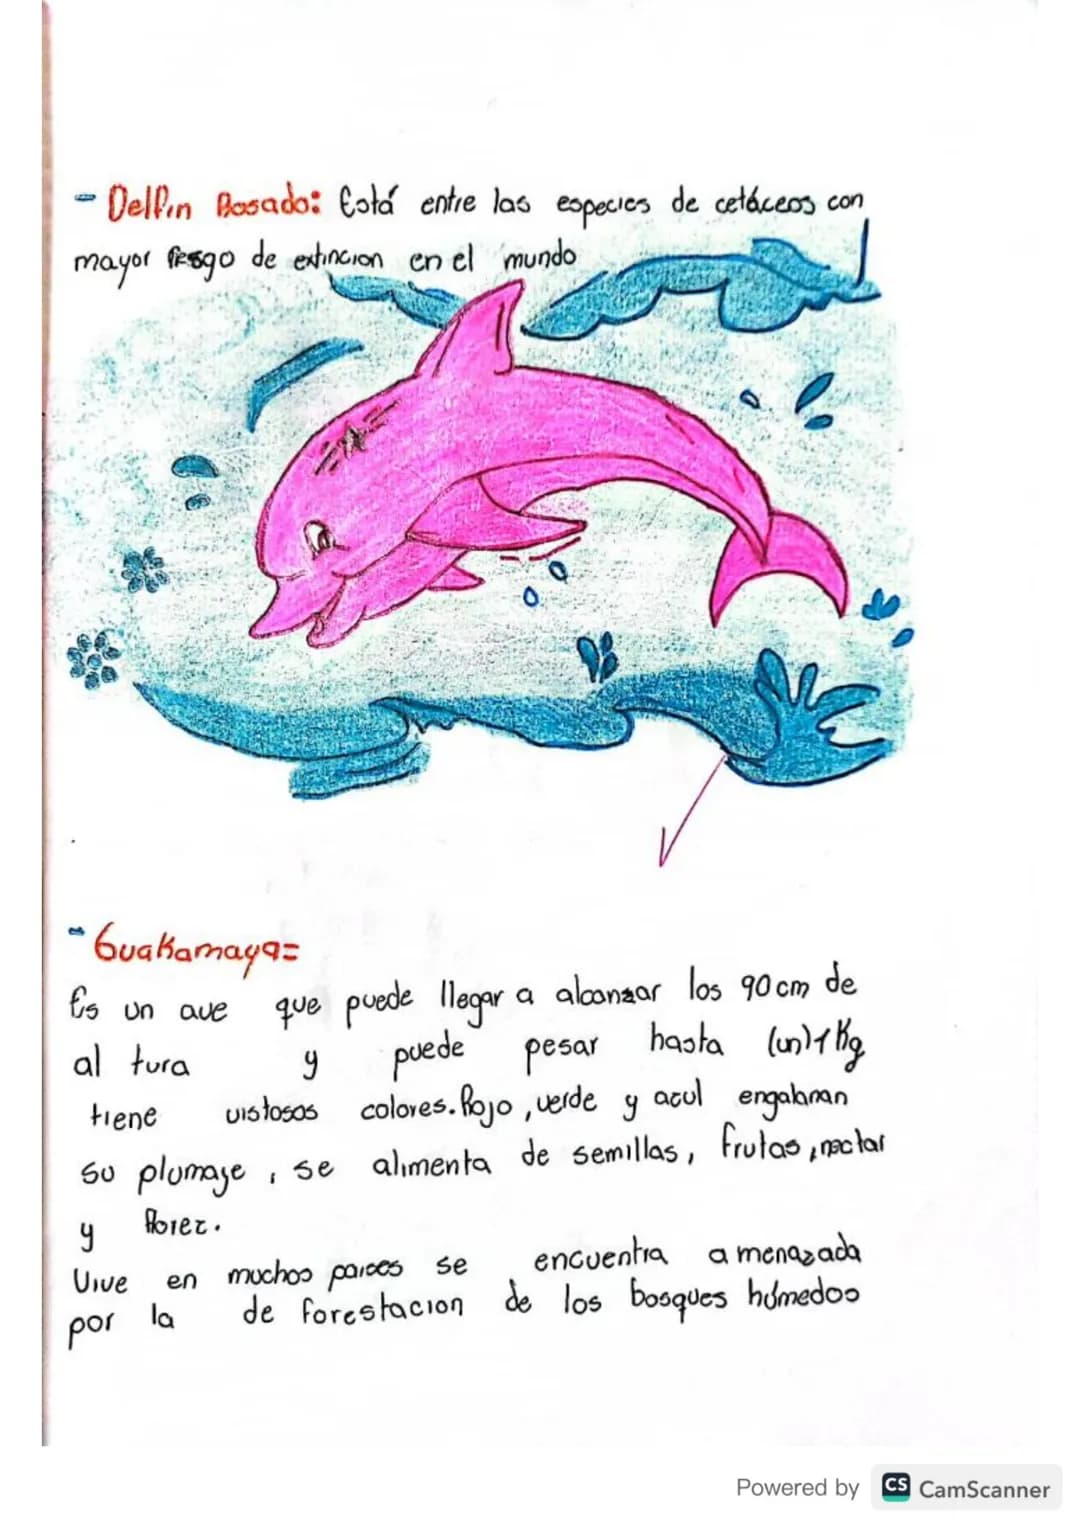 - Delfin Rosado: Está entre las especies de cetáceos con
mayor riesgo de extincion en el mundo
- Guakamaya=
Es un ave que puede llegar a alcanzar los 90 cm de
al tura y puede pesar hasta (un) 1 Kg
tiene vistosos colores. Rojo, verde y azul engalanan
su plumaje, se alimenta de semillas, frutas, nectar
y florez.
Vive en muchos paises se encuentra a menazada
por la de forestacion de los bosques húmedos
Powered by CS CamScanner